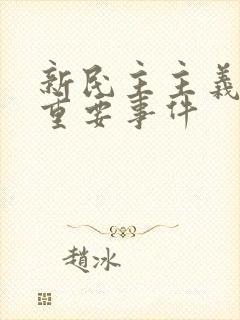 新民主主義
重要事件
趙冰